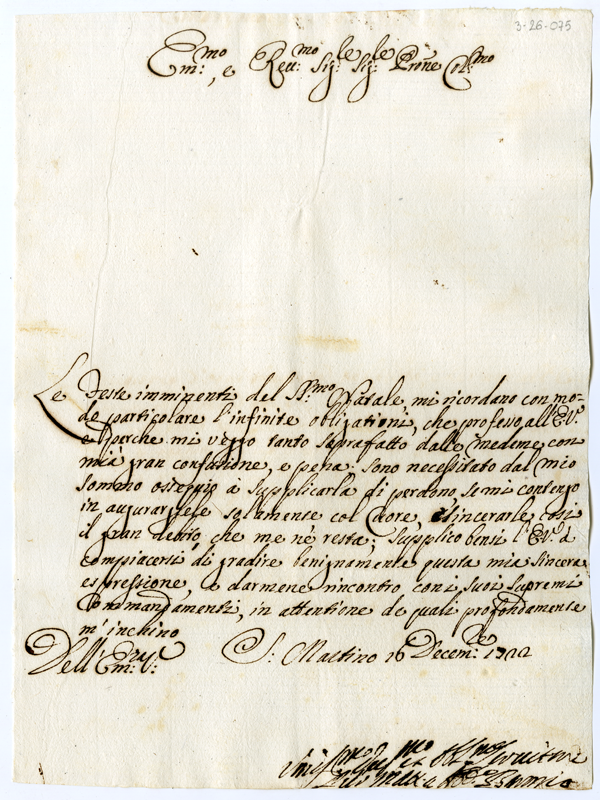 3-26-075
Em:mo, e Reu:mo Sig:le Sig:le Prone Col:mo
Le Feste imminenti del SS:mo Natale, mi ricordano con mo-
do particolare l'infinite obligationi, che professo all'E.V.
e perche mi veggo tanto soprafatto dalle medeme, con
mia gran confusione, e pena: sono necessitato dal mio
sommo ossequio à supplicarla di perdono, se mi contengo
in augurargliele solamente col Cuore, sincerarle, così
il gran debito, che me nè resta; supplico bensi l'E.V. à
compiacersi, di gradire benignamente questa mia sincera
espressione, e darmene rincontro con i suoi supremi
Commandamenti, in attentione de quali profondamente
m'inchino
Dell'Em:za V:
S. Martino 16 Decem:re 1722
Um:mo Dev:mo et Obl:mo